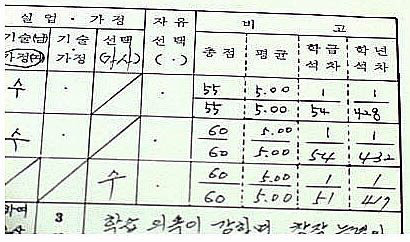 실업·가정 자유 비 고
기술(남) 기술 선택 선택 총점 평균 학급 학년
가정(여) 가정 (가사) (·) 석차 석차
수 · · 55 5.00 1 1
55 5.00 54 428
수 · · 60 5.00 1 1
60 5.00 54 432
수 · 60 5.00 1 1
60 5.00 51 417
하여 3 학습 의욕이 강하며